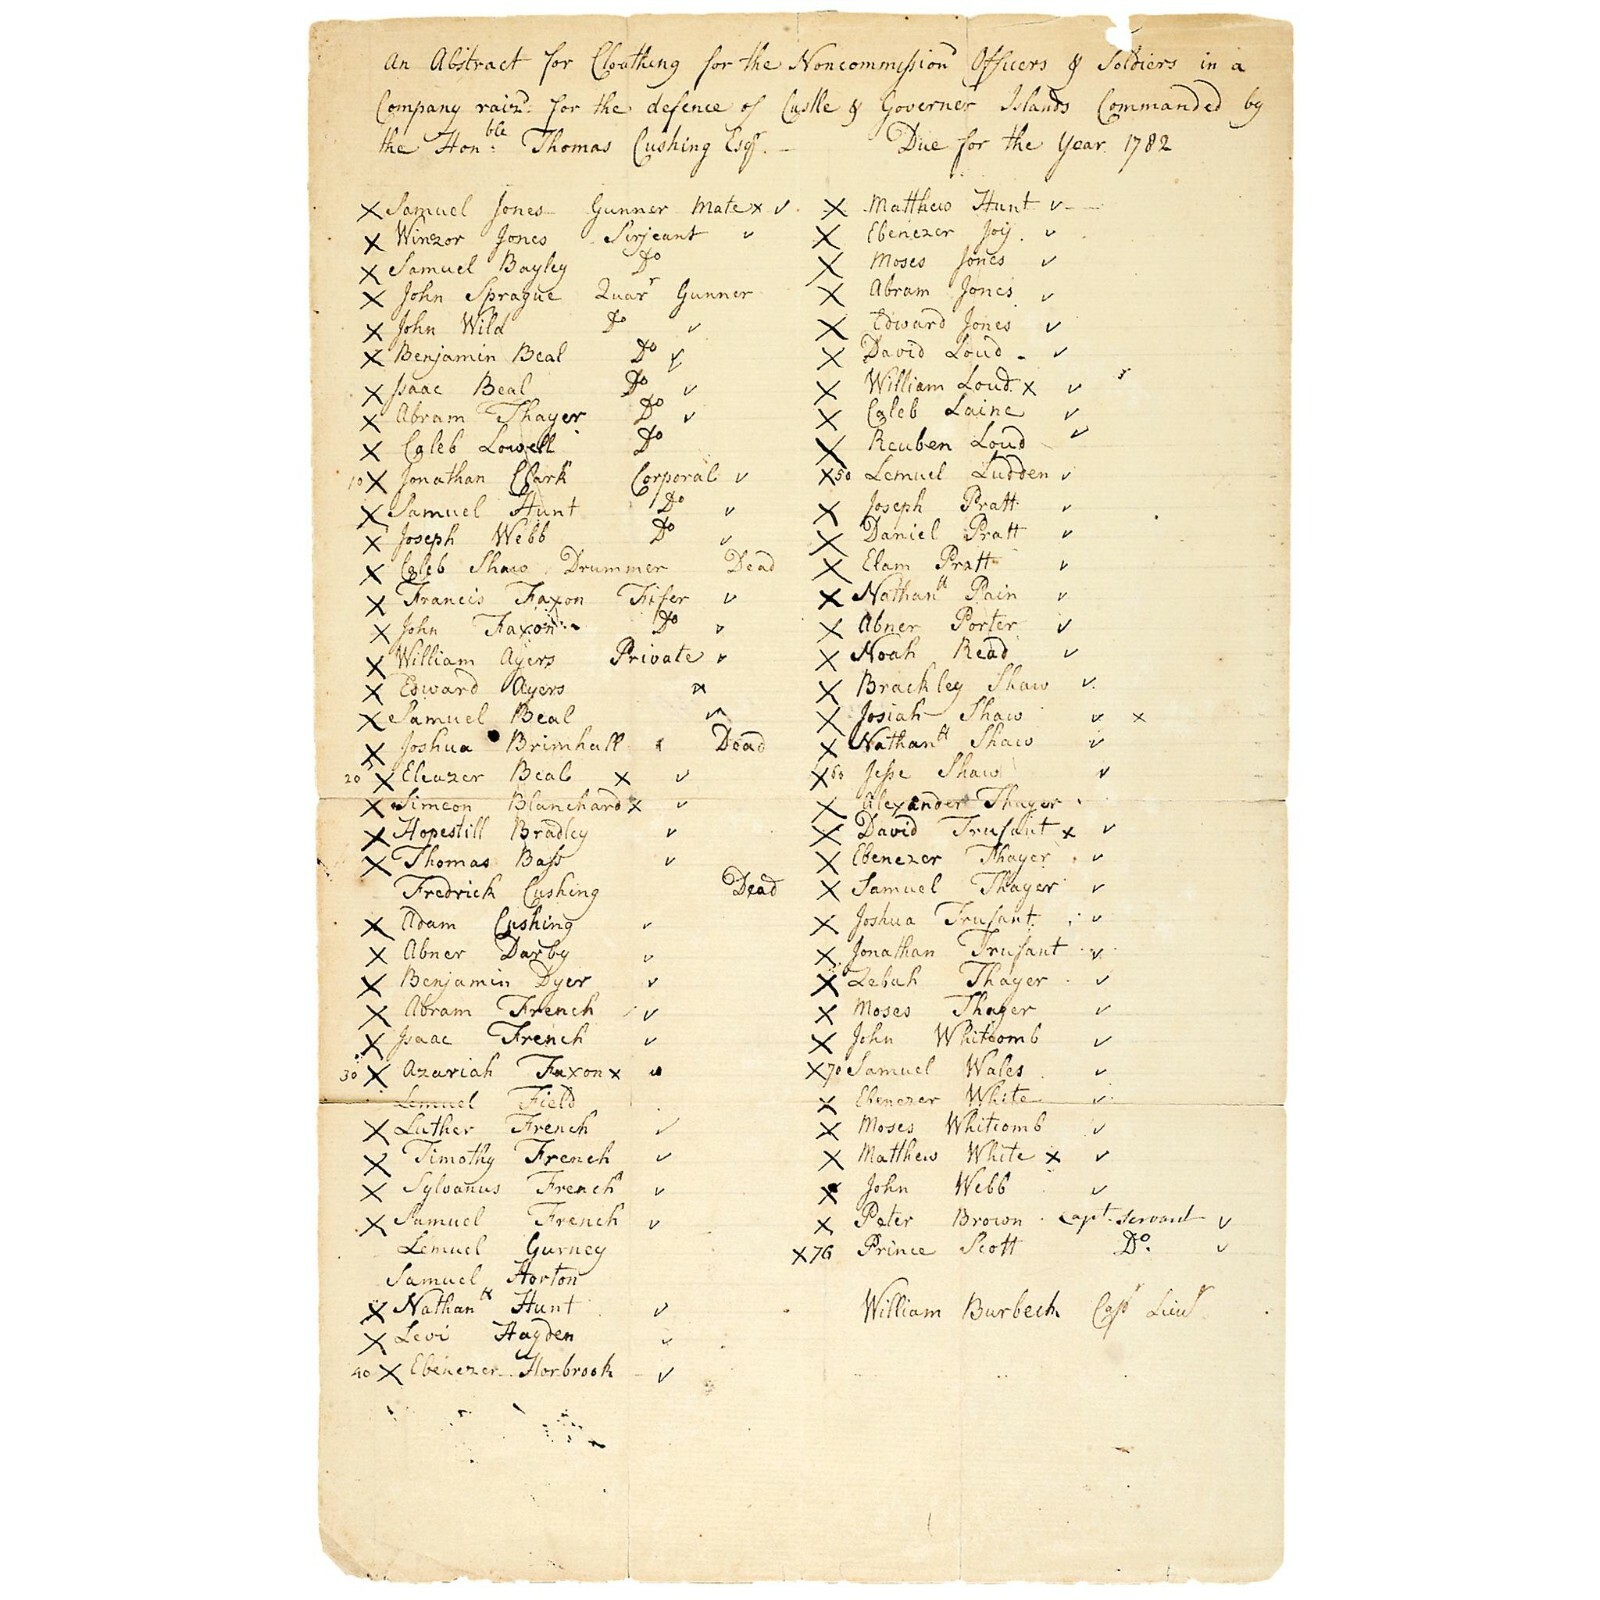 An Abstract for Cloathing for the Noncommission Officers & Soldiers in a
Company raiz'd: for the defence of Castle & Governer Islands Commanded by
the Hon.ble Thomas Cushing Esqr. – Due for the Year 1782
X Samuel Jones Gunner Mate x v
X Winzor Jones Serjeant v
X Samuel Bayley Do
X John Sprague Quar r Gunner
X John Wild Do v
X Benjamin Beal Do v
X Isaac Beal Do v
X Abram Thayer Do v
X Caleb Lowell Do
10 X Jonathan Clark Corporal v
X Samuel Hunt Do v
X Joseph Webb Do v
X Caleb Shaw Drummer Dead
X Francis Faxon Fifer v
X John Faxon Do v
X William Ayers Private v
X Edward Ayers
X Samuel Beal
X Joshua Brimhall Dead
20 X Eleazer Beal x v
X Simeon Blanchard x v
X Hopestill Bradley v
X Thomas Bass v
Fredrick Cushing Dead
X Adam Cushing v
X Abner Darby v
X Benjamin Dyer v
X Abram French v
X Isaac French v
30 X Azariah Faxon x
Lemuel Field
X Luther French v
X Timothy French v
X Sylvanus French v
X Samuel French v
Lemuel Gurney
Samuel Horton
X Nathan ll Hunt v
X Levi Hayden v
40 X Ebenezer Horbrook v
X Matthew Hunt v
X Ebenezer Joy v
X Moses Jones v
X Abram Jones v
X Edward Jones v
X David Loud v
X William Loud x v
X Caleb Laine v
X Reuben Loud v
X 50 Lemuel Ludden v
X Joseph Pratt v
X Daniel Pratt v
X Elam Pratt v
X Nathan ll Pain v
X Abner Porter v
X Noah Read v
X Brackley Shaw v
X Josiah Shaw v x
X Nathan ll Shaw v
X 60 Jesse Shaw v
X Alexander Thayer
X David Trufant x v
X Ebenezer Thayer v
X Samuel Thayer v
X Joshua Trufant v
X Jonathan Trufant v
X Zebah Thayer v
X Moses Thayer v
X John Whitcomb v
X 70 Samuel Wales v
X Ebenezer White v
X Moses Whitcomb v
X Matthew White x v
X John Webb v
X Peter Brown Capt. Servant v
X 76 Prince Scott Do. v
William Burbeck Capt Lieut